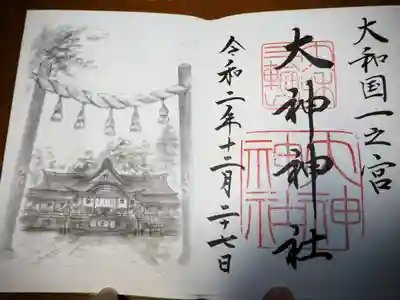 大和国一之宮
三輪
大神神社
大神
神社
令和二年十二月二十七日